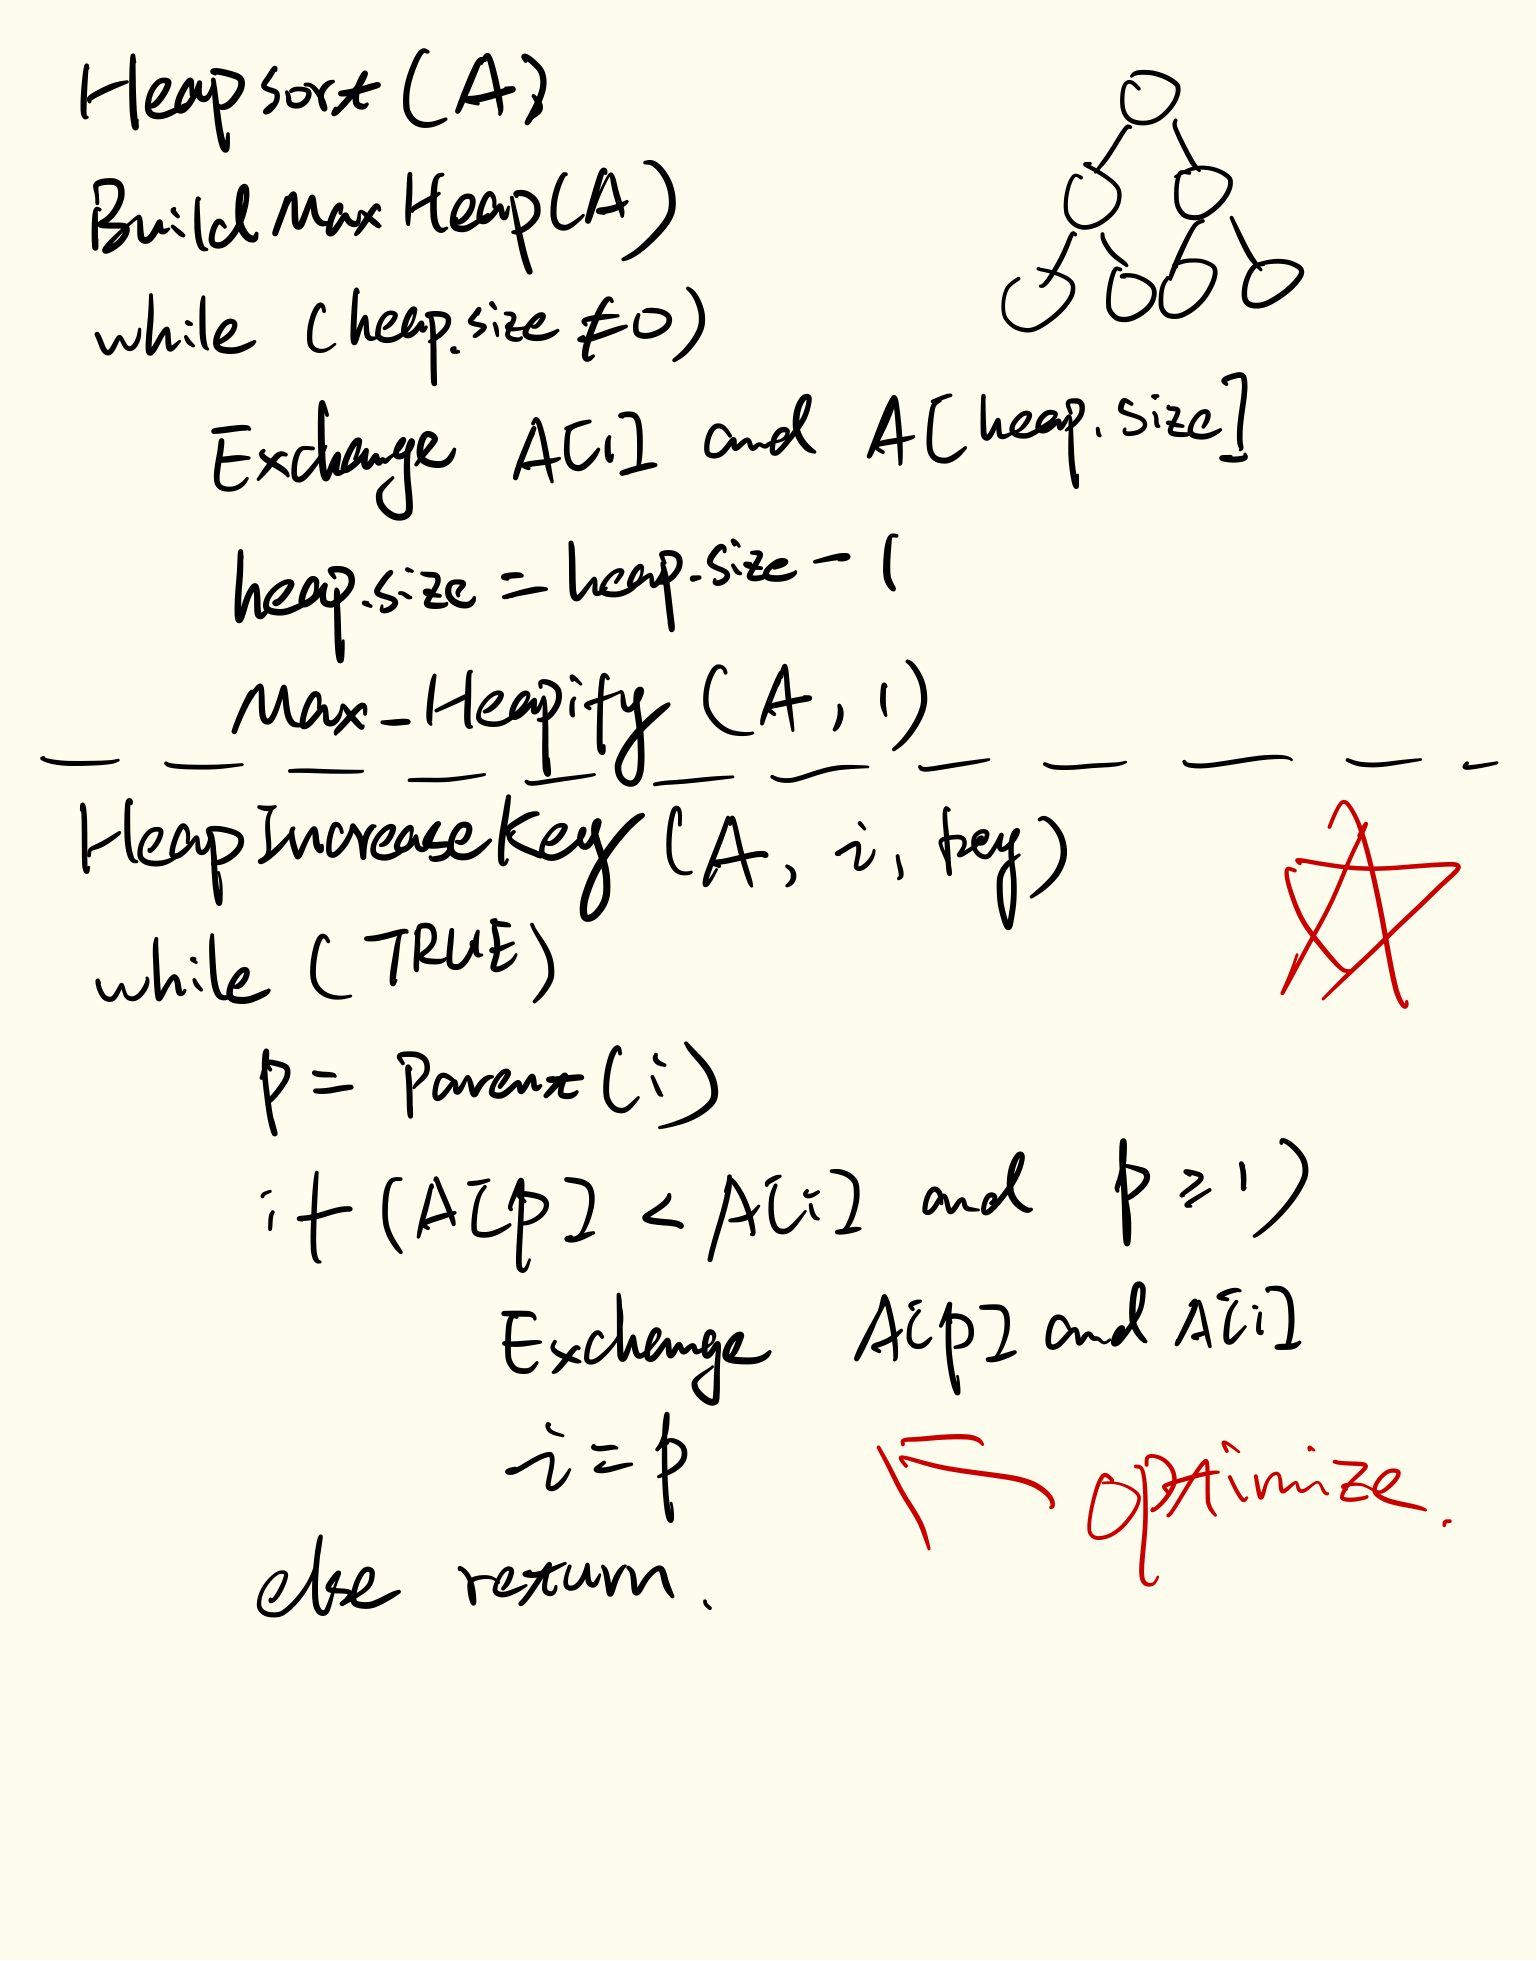 Heapsort(A)
Build Max Heap(A)
while (heap.size ≠ 0)
Exchange A[1] and A[heap.size]
heap.size = heap.size - 1
Max_Heapify (A, 1)
HeapIncreaseKey (A, i, key)
while (TRUE)
p = Parent(i)
if (A[p] < A[i] and p ≥ 1)
Exchange A[p] and A[i]
i = p
optimize.
else return.